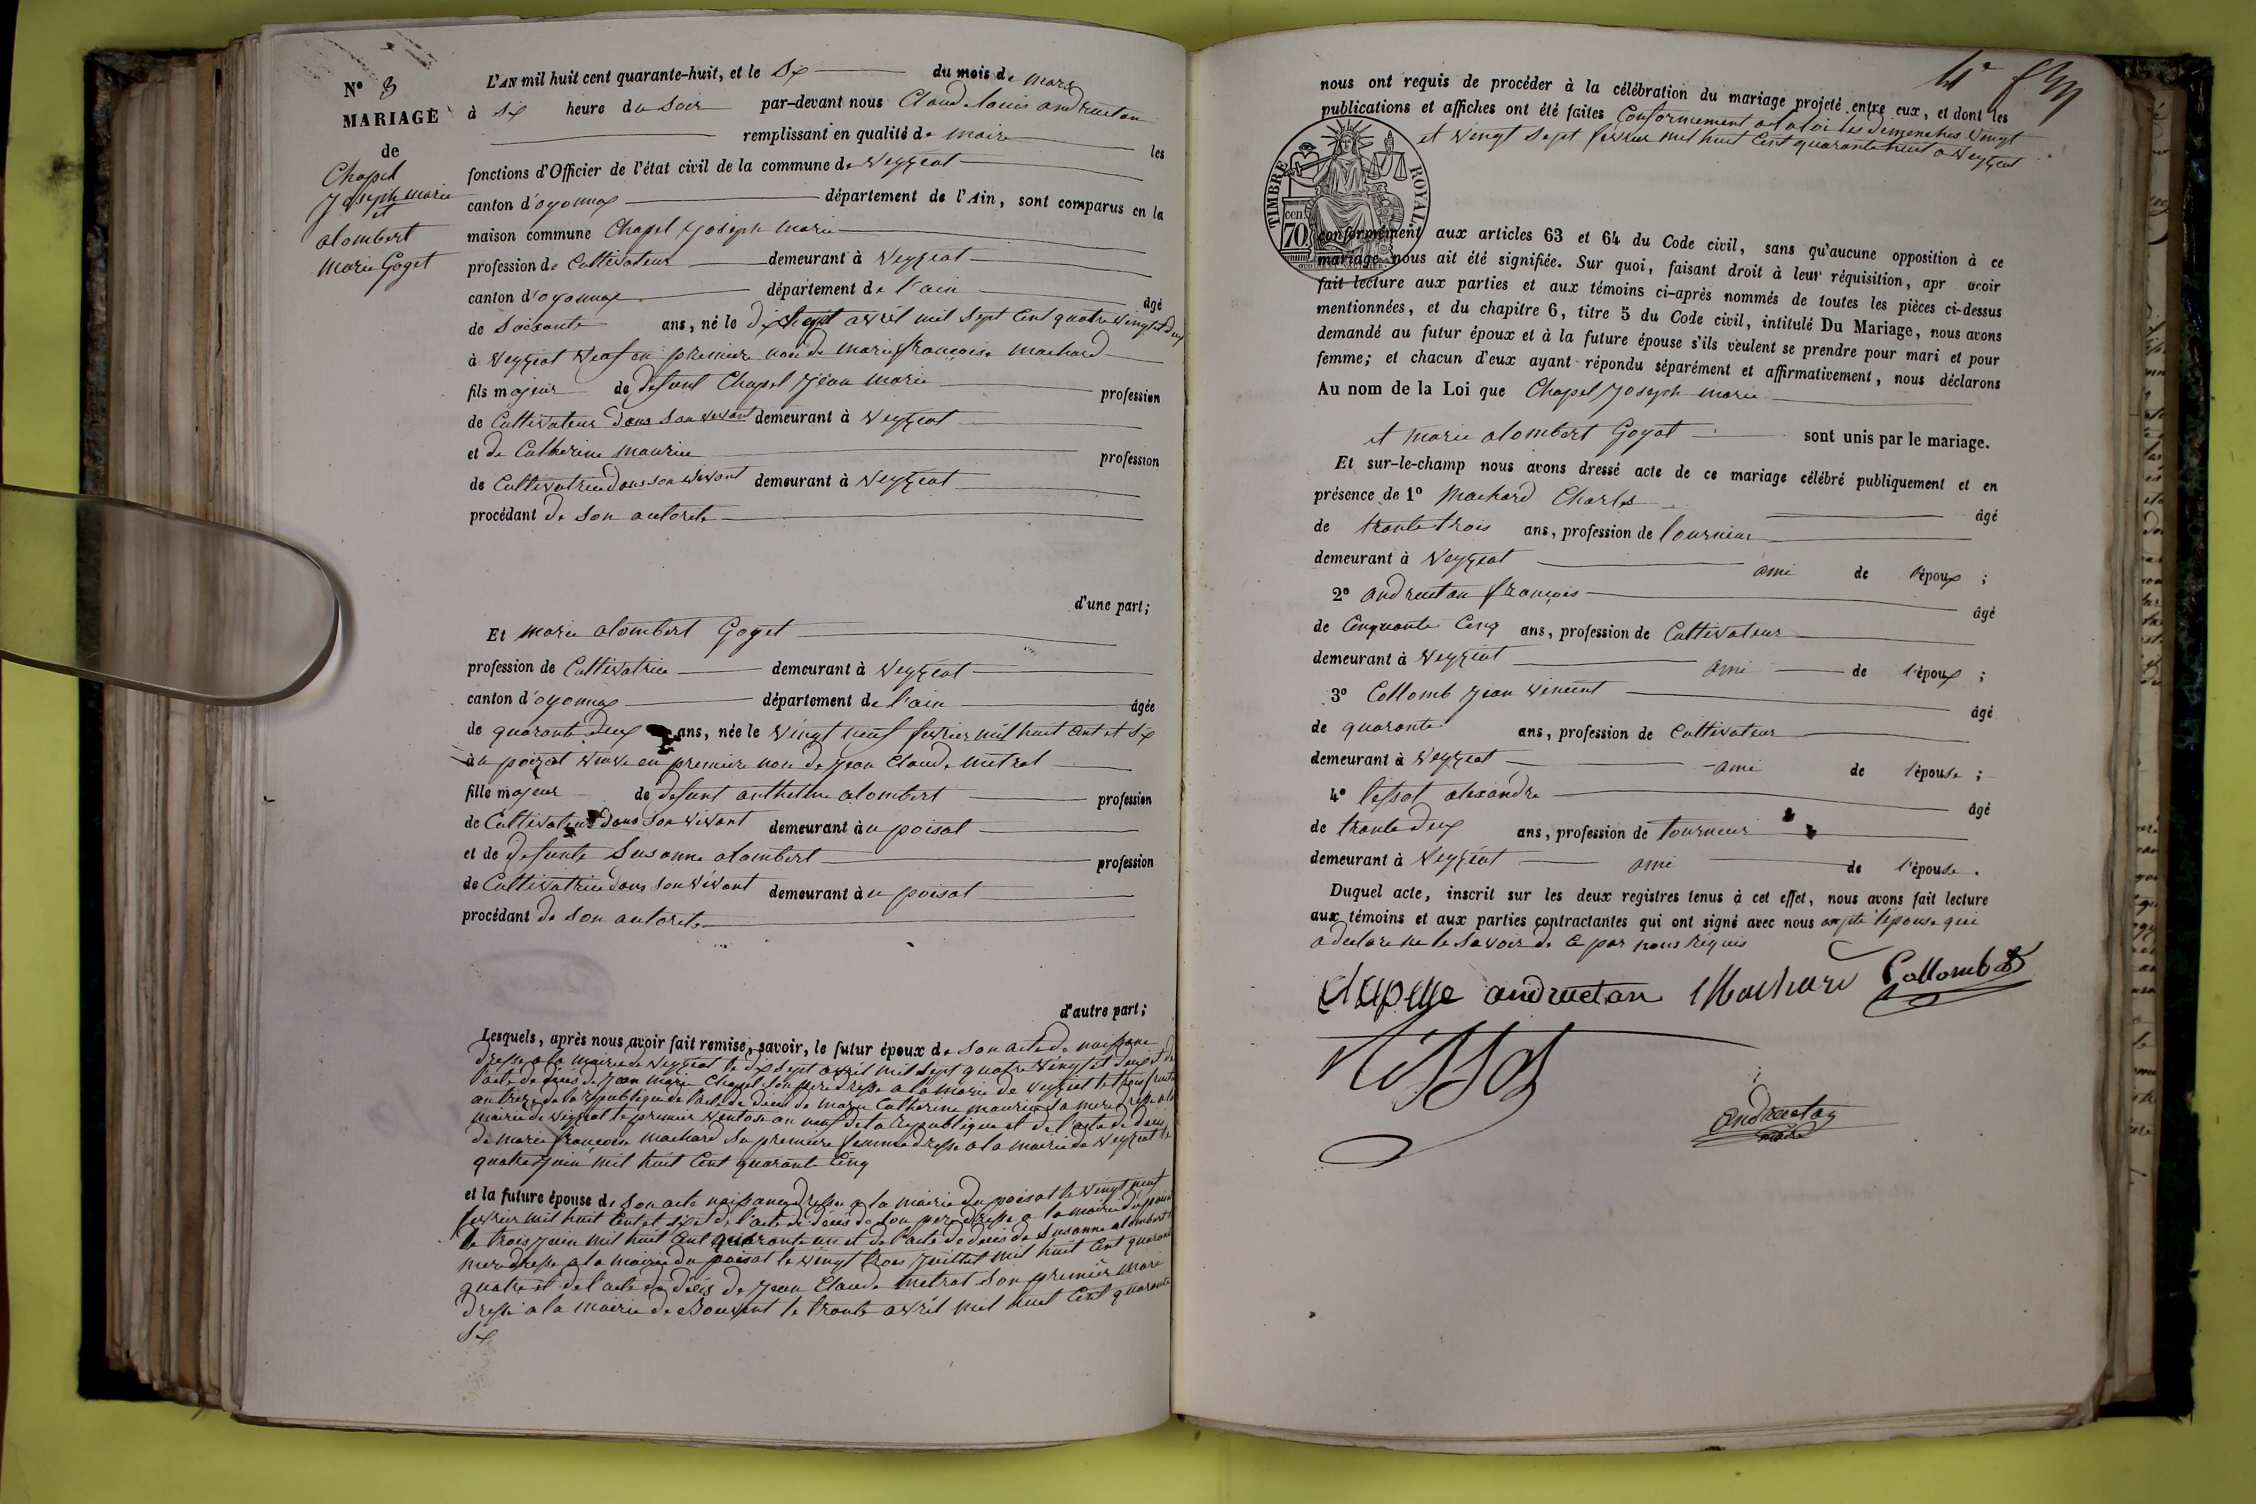 N° 3
MARIAGE
de
Chapel
Joseph marie
et
alombert
Marie Goget
L'AN mil huit cent quarante-huit, et le Six du mois de mars
à Six heure du Soir par-devant nous Claude louis andruetan
remplissant en qualité de maire les
fonctions d'Officier de l'état civil de la commune de Veyziat
canton d'oyonnax département de l'Ain, sont comparus en la
maison commune Chapel Joseph marie
profession de Cultivateur demeurant à Veyziat
canton d'oyonnax département de l'ain âgé
de Soixante ans, né le dix Sept avril mil Sept Cent quatre vingt deux
à Veyziat Veuf en premiere noce de marie françoise machard
fils majeur de defunt Chapel Jean marie profession
de Cultivateur dans son vivant demeurant à Veyziat
et de Catherine maurin profession
de Cultivatrice dans son vivant demeurant à Veyziat
procédant de son autorite
d'une part;
Et marie alombert Goget
profession de Cultivatrice demeurant à Veyziat
canton d'oyonnax département de l'ain âgée
de quarante deux ans, née le vingt neuf fevrier mil huit cent et Six
à u poizat veuve en premiere noce de Jean Claude metral
fille majeur de defunt anthelme alombert profession
de Cultivateur dans son vivant demeurant à u poisat
et de defunte Susanne alombert profession
de Cultivatrice dans son vivant demeurant à u poisat
procédant de son autorite
d'autre part;
Lesquels, après nous avoir fait remise, savoir, le futur époux de son acte de naissance
dressé a la mairie de Veyziat le dix sept avril mil sept quatre vingt et deux et de
l'acte de décés de Jean marie Chapel son pere dressé a la marie de Veyziat le trois
an treize de la republique de l'acte de décés de marie Catherine maurin sa mere dressé a la
mairie de Veyziat le premier Ventose an neuf de la republique et de l'acte de décés
de marie françoise machard sa premiere femme dressé a la mairie de Veyziat le
quatre juin mil huit Cent quarante Cinq
et la future épouse de son acte naissance dressé a la mairie du poisat le vingt neuf
fevrier mil huit Cent et six et de l'acte de décés de son pere dressé a la mairie du poisat
le trois juin mil huit Cent quarante un et de l'acte de décés de Susanne alombert
mere dressé a la mairie du poisat le vingt trois Juillet mil huit Cent quarante
quatre et de l'acte de décés de Jean Claude metral son premier mari
dressé a la mairie de Bouvent le trente avril mil huit Cent quarante
Six
4e
nous ont requis de procéder à la célébration du mariage projeté entre eux, et dont les
publications et affiches ont été faites Conformement a la loi les dimenches vingt
et vingt Sept fevrier mil huit Cent quarante huit a Veyziat
TIMBRE ROYAL
70 cen
conformément aux articles 63 et 64 du Code civil, sans qu'aucune opposition à ce
mariage nous ait été signifiée. Sur quoi, faisant droit à leur réquisition, apr avoir
fait lecture aux parties et aux témoins ci-après nommés de toutes les pièces ci-dessus
mentionnées, et du chapitre 6, titre 5 du Code civil, intitulé Du Mariage, nous avons
demandé au futur époux et à la future épouse s'ils veulent se prendre pour mari et pour
femme; et chacun d'eux ayant répondu séparément et affirmativement, nous déclarons
Au nom de la Loi que Chapel Joseph marie
et marie alombert Goyat sont unis par le mariage.
Et sur-le-champ nous avons dressé acte de ce mariage célébré publiquement et en
présence de 1° Machard Charles âgé
de trante trois ans, profession de tourneur
demeurant à Veyziat ami de l'époux ;
2° andruetan françois âgé
de Cinquante Cinq ans, profession de Cultivateur
demeurant à Veyziat ami de l'époux ;
3° Collomb Jean vincent âgé
de quarante ans, profession de Cultivateur
demeurant à Veyziat ami de l'épouse ;
4° tissot alexandre âgé
de trante deux ans, profession de tourneur
demeurant à Veyziat ami de l'épouse .
Duquel acte, inscrit sur les deux registres tenus à cet effet, nous avons fait lecture
aux témoins et aux parties contractantes qui ont signé avec nous excepté l'épouse qui
a declaré ne le savoir de ce par nous requis
chapelle andruetan Machard Collomb
tissot
andruetan
maire